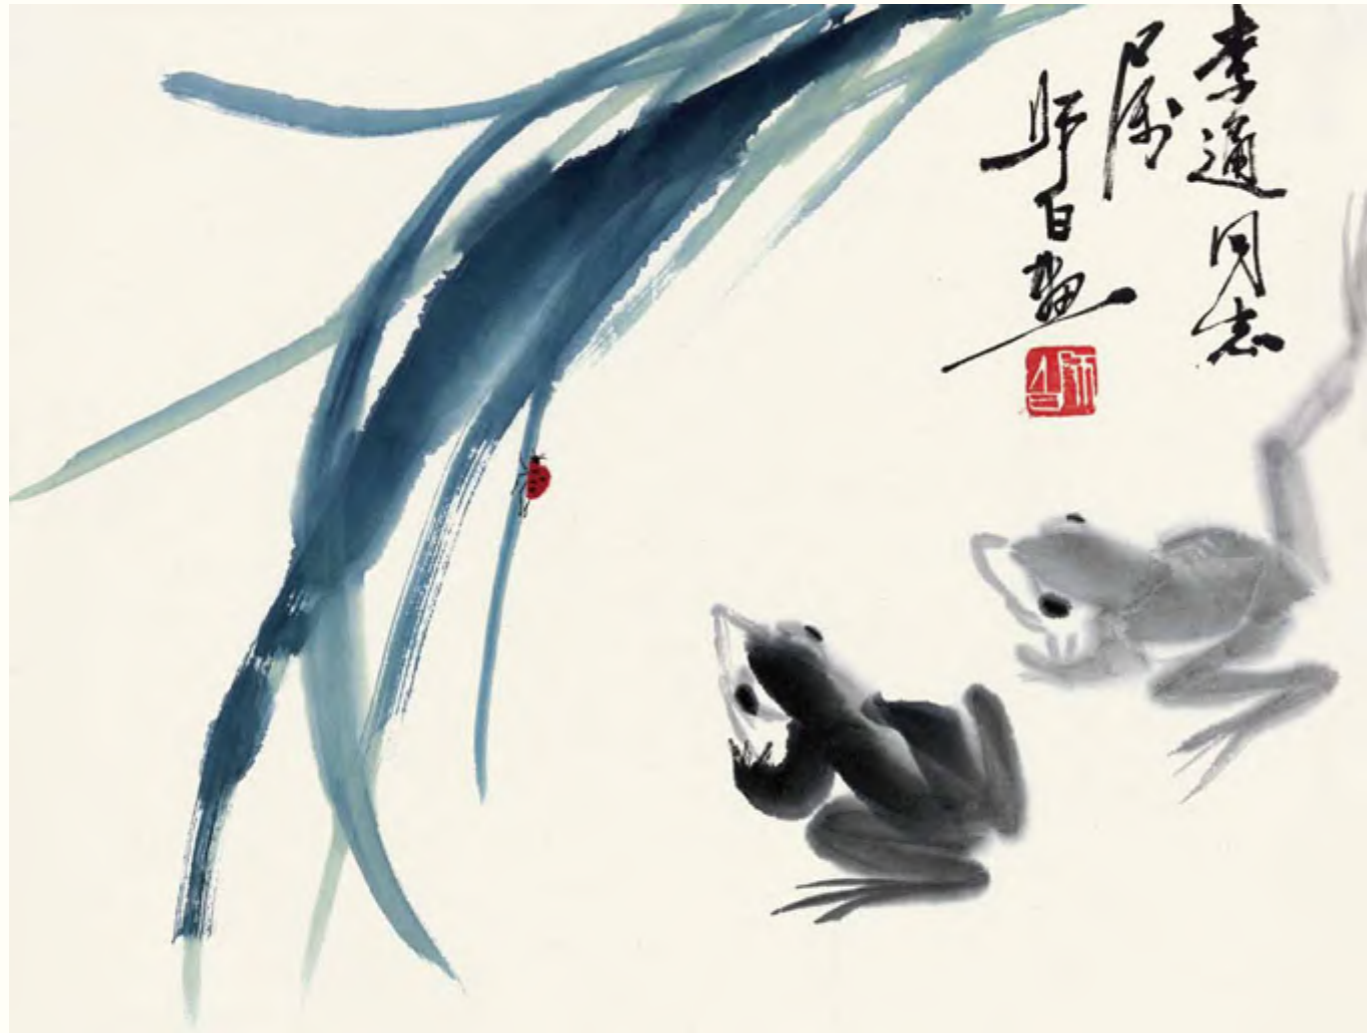 李通同志
属
师白畫
师白